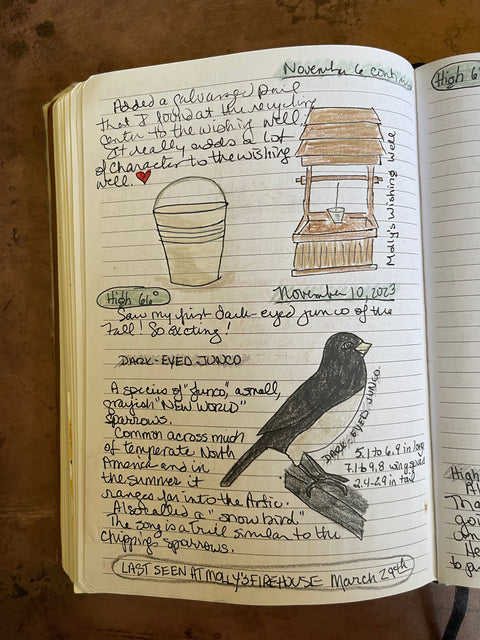 November 6 contin
Added a galvanized pail
that I found at the recycling
center to the wishing well.
It really adds a lot
of character to the wishing
well.
Molly's Wishing Well
High 66°
November 10, 2023
Saw my first dark-eyed junco of the
Fall! So exciting!
DARK-EYED JUNCO
A species of "junco", a small,
grayish "NEW WORLD"
sparrows.
Common across much
of temperate North
America and in
the summer it
ranges far into the Arctic.
Also called a "snowbird"
The song is a trill similar to the
chipping sparrows.
DARK-EYED JUNCO
5.1 to 6.9 in long
7.1 to 9.8 wingspread
2.4-2.9 in tail
LAST SEEN AT MOLLY'S FIREHOUSE March 29th
High 6
High
Al
Tha
goi
an
He
to ga